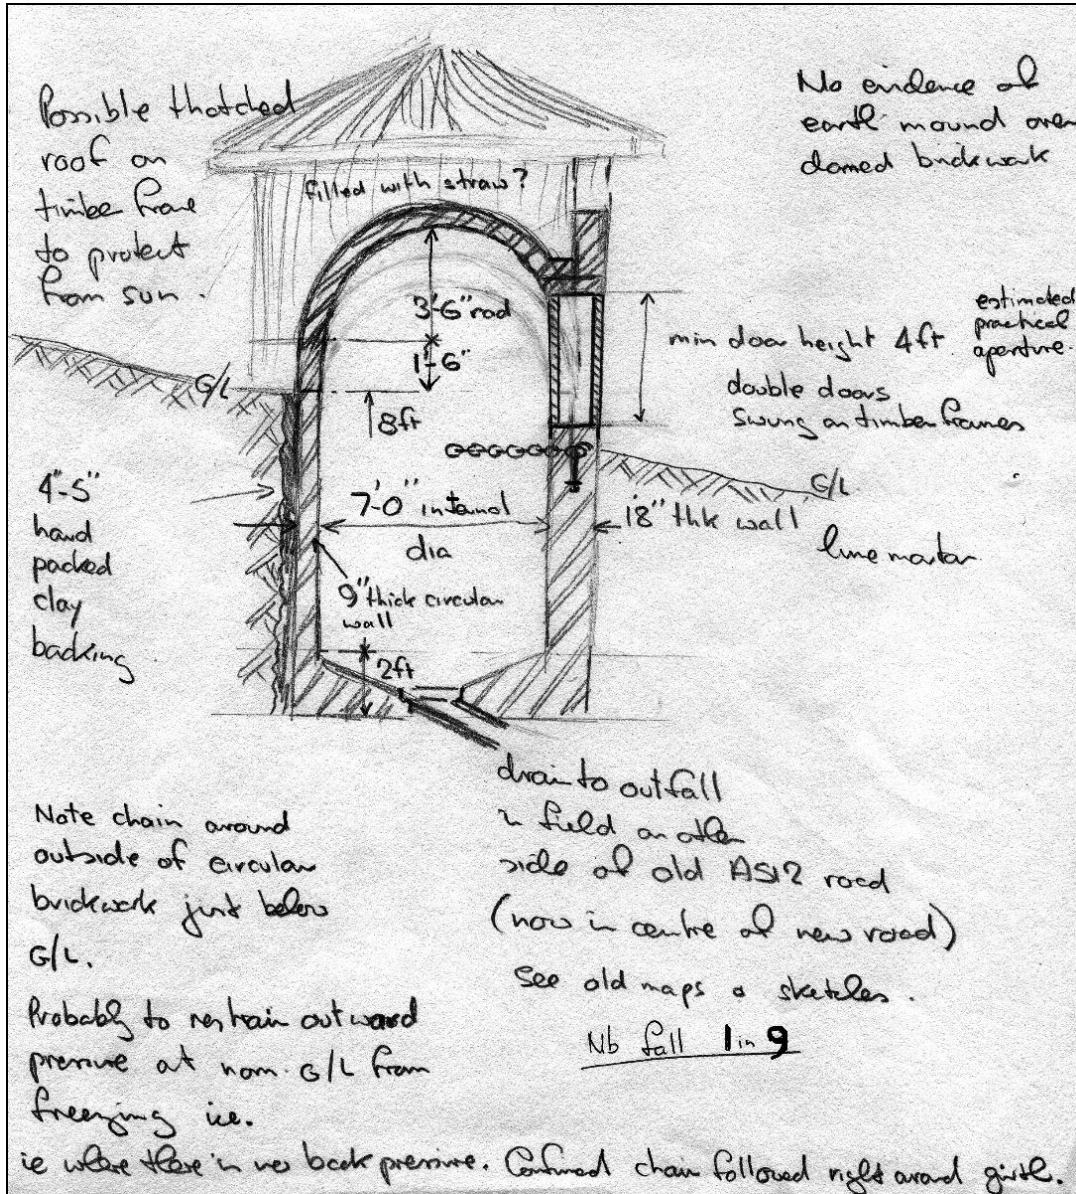 Possible thatched
roof on
timber frame
to protect
from sun.
No evidence of
earth mound over
domed brickwork
filled with straw?
3'-6" rad
1'-6"
G/L
8ft
min door height 4ft
estimated
practical
aperture.
double doors
swung on timber frames
4"-5"
hand
packed
clay
backing
7'-0" internal
dia
9" thick circular
wall
18" thk wall
G/L
lime mortar
2ft
drain to outfall
in field on other
side of old A512 road
(now in centre of new road)
See old maps & sketches.
Nb fall 1 in 9
Note chain around
outside of circular
brickwork just below
G/L.
Probably to restrain outward
pressure at nom. G/L from
freezing ice.
ie where there is no back pressure. Confirmed chain followed right around girth.